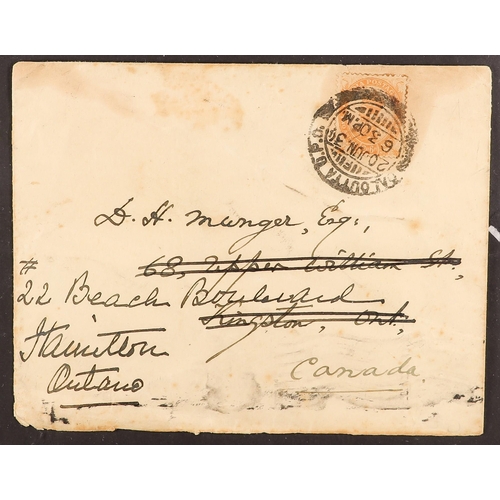 CALCUTTA G.P.O.
6 30 P.M
20 JUN 39
D. H. Munger, Esq:,
68, Upper William St.,
# 22 Beach Boulevard
Kingston, Ont,
Hamilton
Canada.
Ontario